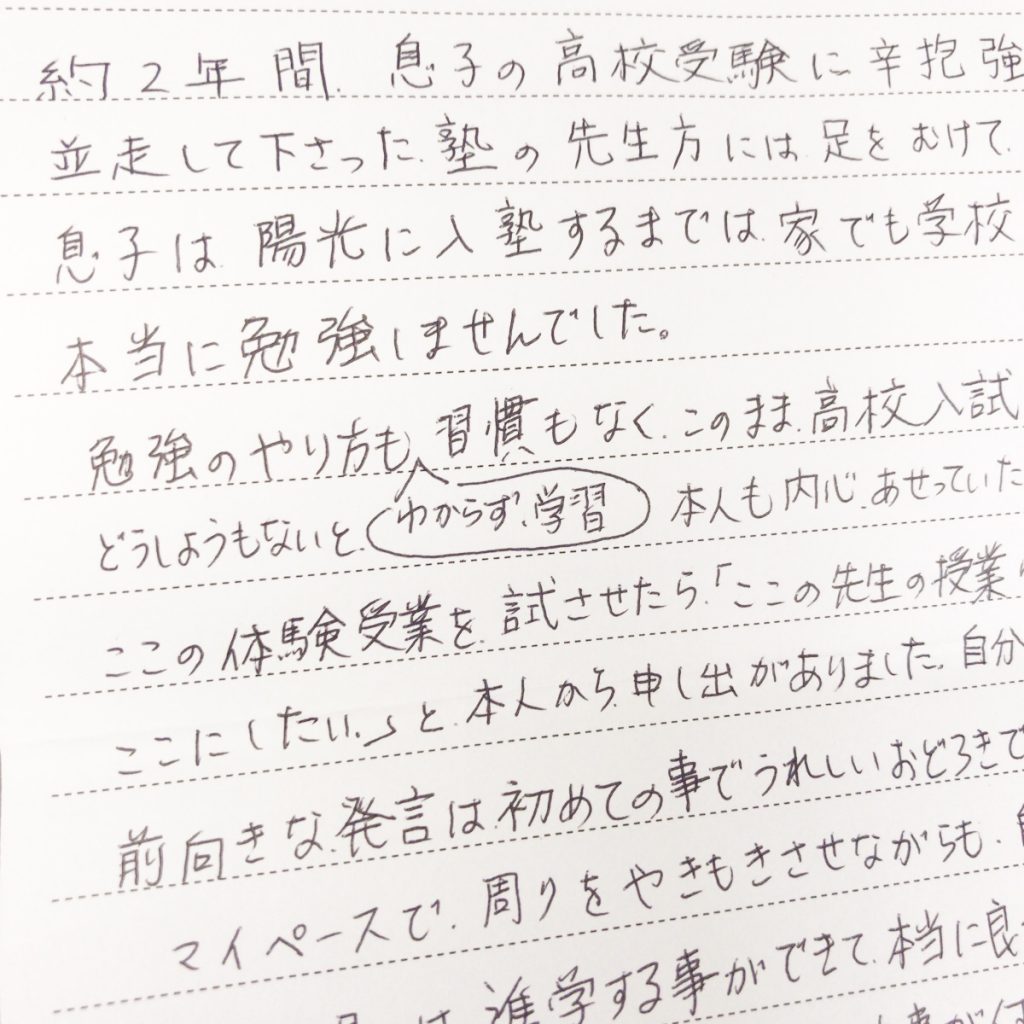 約2年間、息子の高校受験に辛抱強
並走して下さった、塾の先生方には、足をむけて、
息子は、陽光に入塾するまでは、家でも学校
本当に勉強しませんでした。
勉強のやり方も、習慣もなく、このまま、高校入試
わからず、学習
どうしようもないと、本人も内心、あせっていた
ここの体験受業を、試させたら、「ここの先生の授業
ここにしたい。」と、本人から、申し出がありました。自分
前向きな、発言は、初めての事でうれしいおどろきで
マイペースで、周りをやきもきさせながらも、
は、進学する事ができて、本当に良
事が